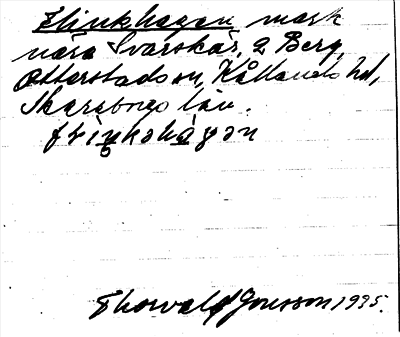 Flinkhagen mark
nära Svarskär, 2 Berg,
Otterstads sn, Kållands hd,
Skaraborgs län.
fliŋkahagən
Thorvald Jonsson 1935.